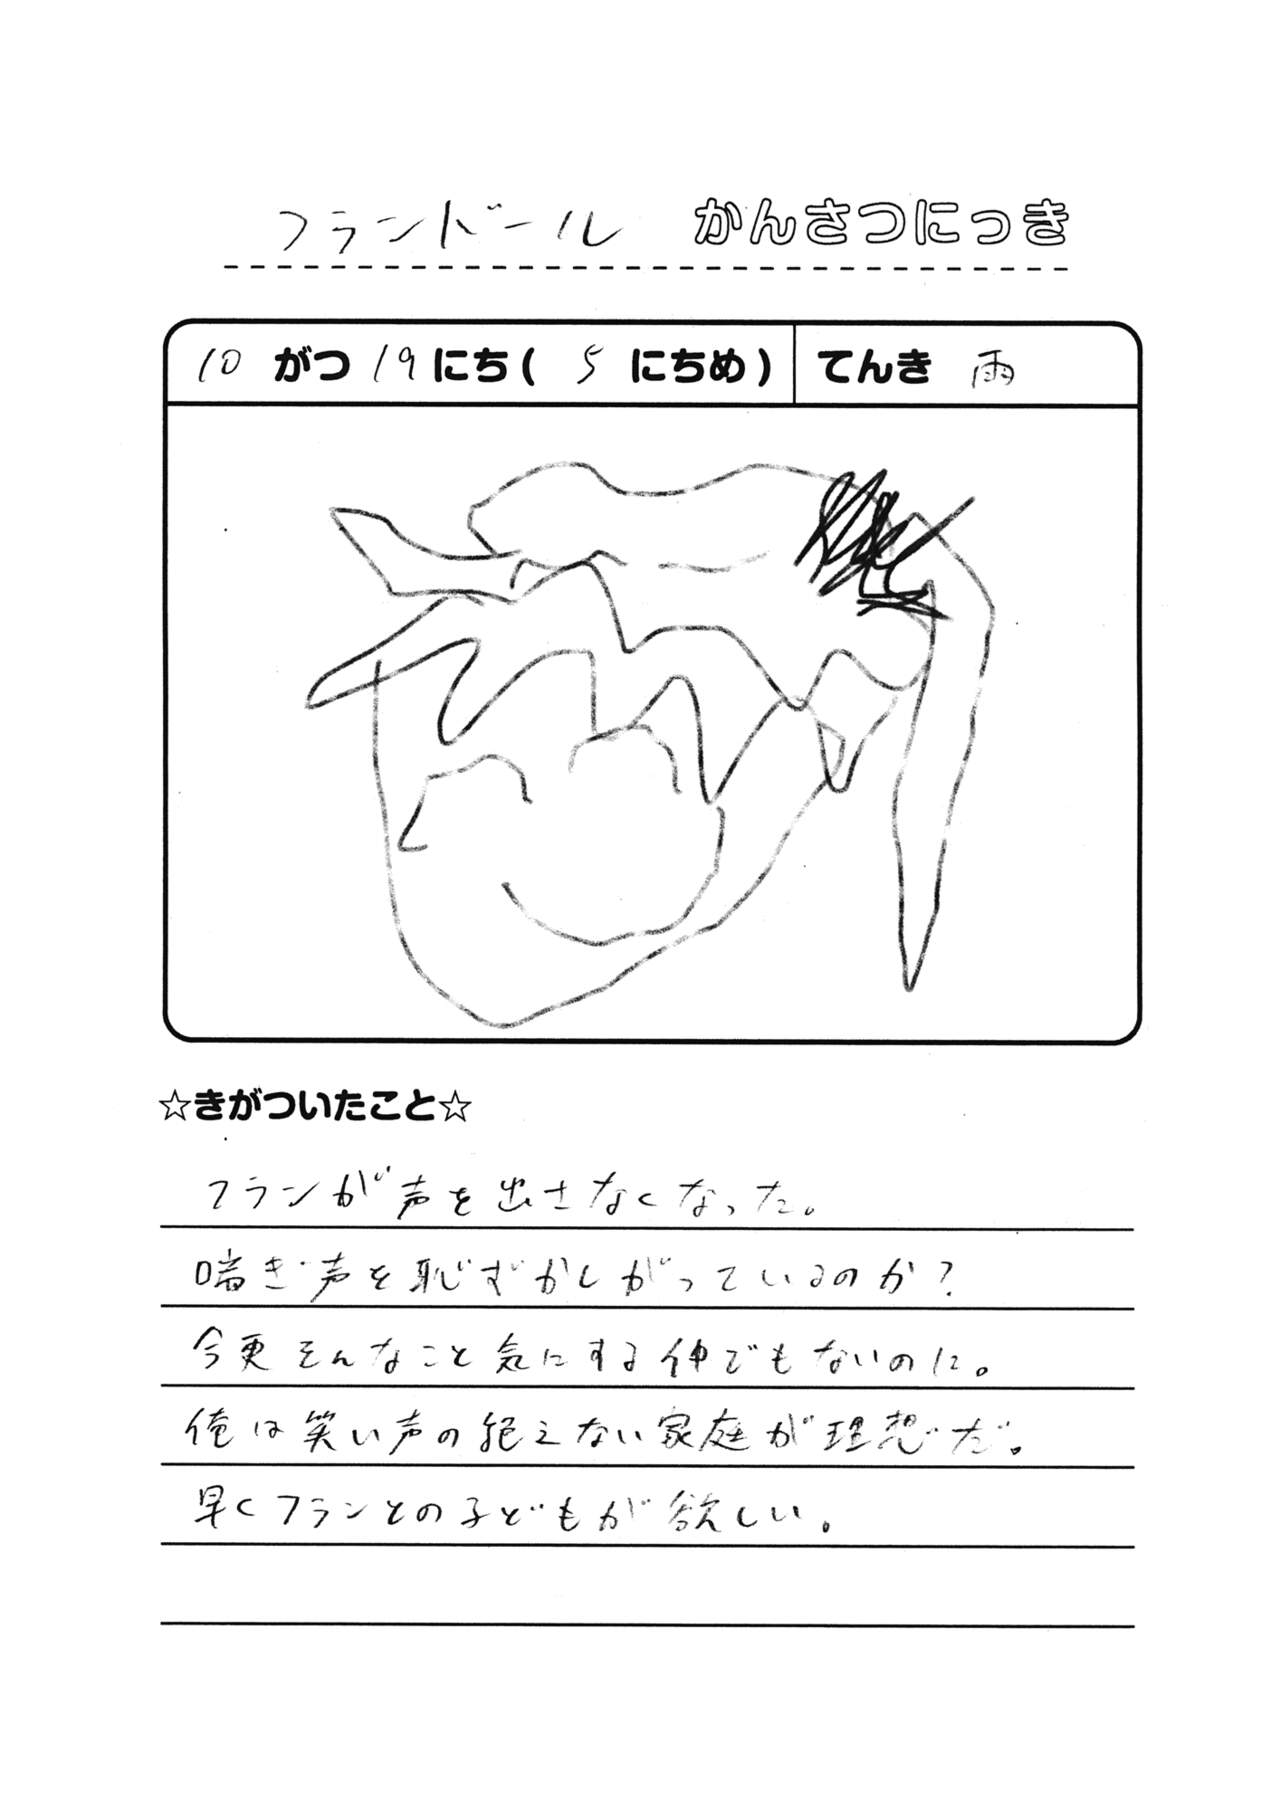 フランドール かんさつにっき
10 がつ 19 にち( 5 にちめ) てんき 雨
☆きがついたこと☆
フランが声を出さなくなった。
喘ぎ声を恥ずかしがっているのか?
今更そんなこと気にする仲でもないのに。
俺は笑い声の絶えない家庭が理想だ。
早くフランとの子どもが欲しい。